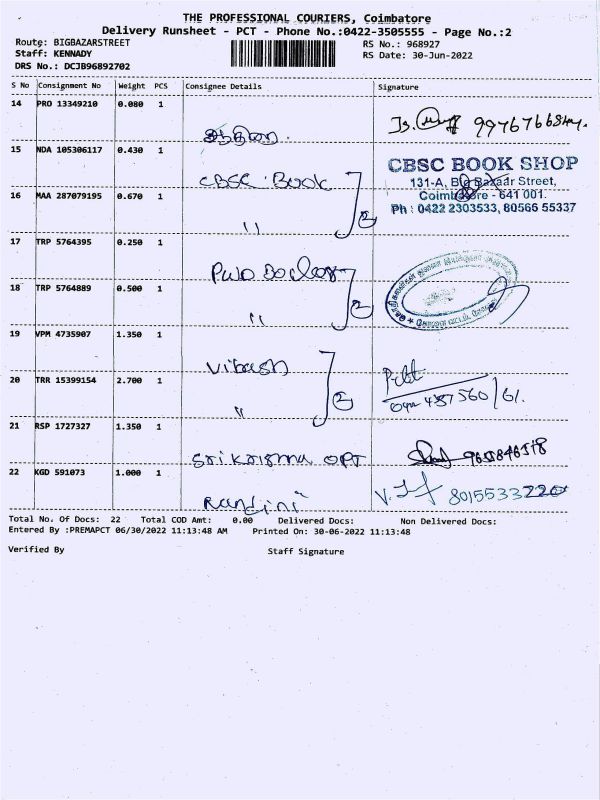 THE PROFESSIONAL COURIERS, Coimbatore
Delivery Runsheet - PCT - Phone No.:0422-3505555 - Page No.:2
Route: BIGBAZARSTREET
Staff: KENNADY
DRS No.: DCJB96892702
RS No.: 968927
RS Date: 30-Jun-2022
S No Consignment No Weight PCS Consignee Details Signature
14 PRO 13349210 0.080 1
15 NDA 105306117 0.430 1
CBSC Book
CBSC BOOK SHOP
131-A, Big Bazaar Street,
Coimbatore - 641 001.
Ph : 0422 2303533, 80566 55337
16 MAA 287079195 0.670 1
" 2
17 TRP 5764395 0.250 1
PWD
18 TRP 5764889 0.500 1
" 2
19 VPM 4735907 1.350 1
Vibash
20 TRR 15399154 2.700 1
" 2
21 RSP 1727327 1.350 1
Srikrisma OPT
22 KGD 591073 1.000 1
Randini
8015533220
Total No. Of Docs: 22 Total COD Amt: 0.00 Delivered Docs: Non Delivered Docs:
Entered By :PREMAPCT 06/30/2022 11:13:48 AM Printed On: 30-06-2022 11:13:48
Verified By Staff Signature